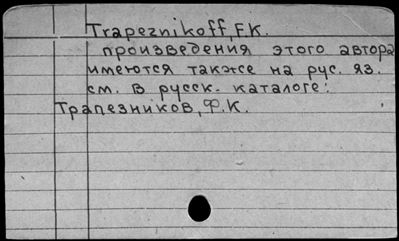 Trapeznikoff, F.K.
произведения этого автора
имеются также на рус. яз.
см. в русск. каталоге:
Трапезников, Ф.К.